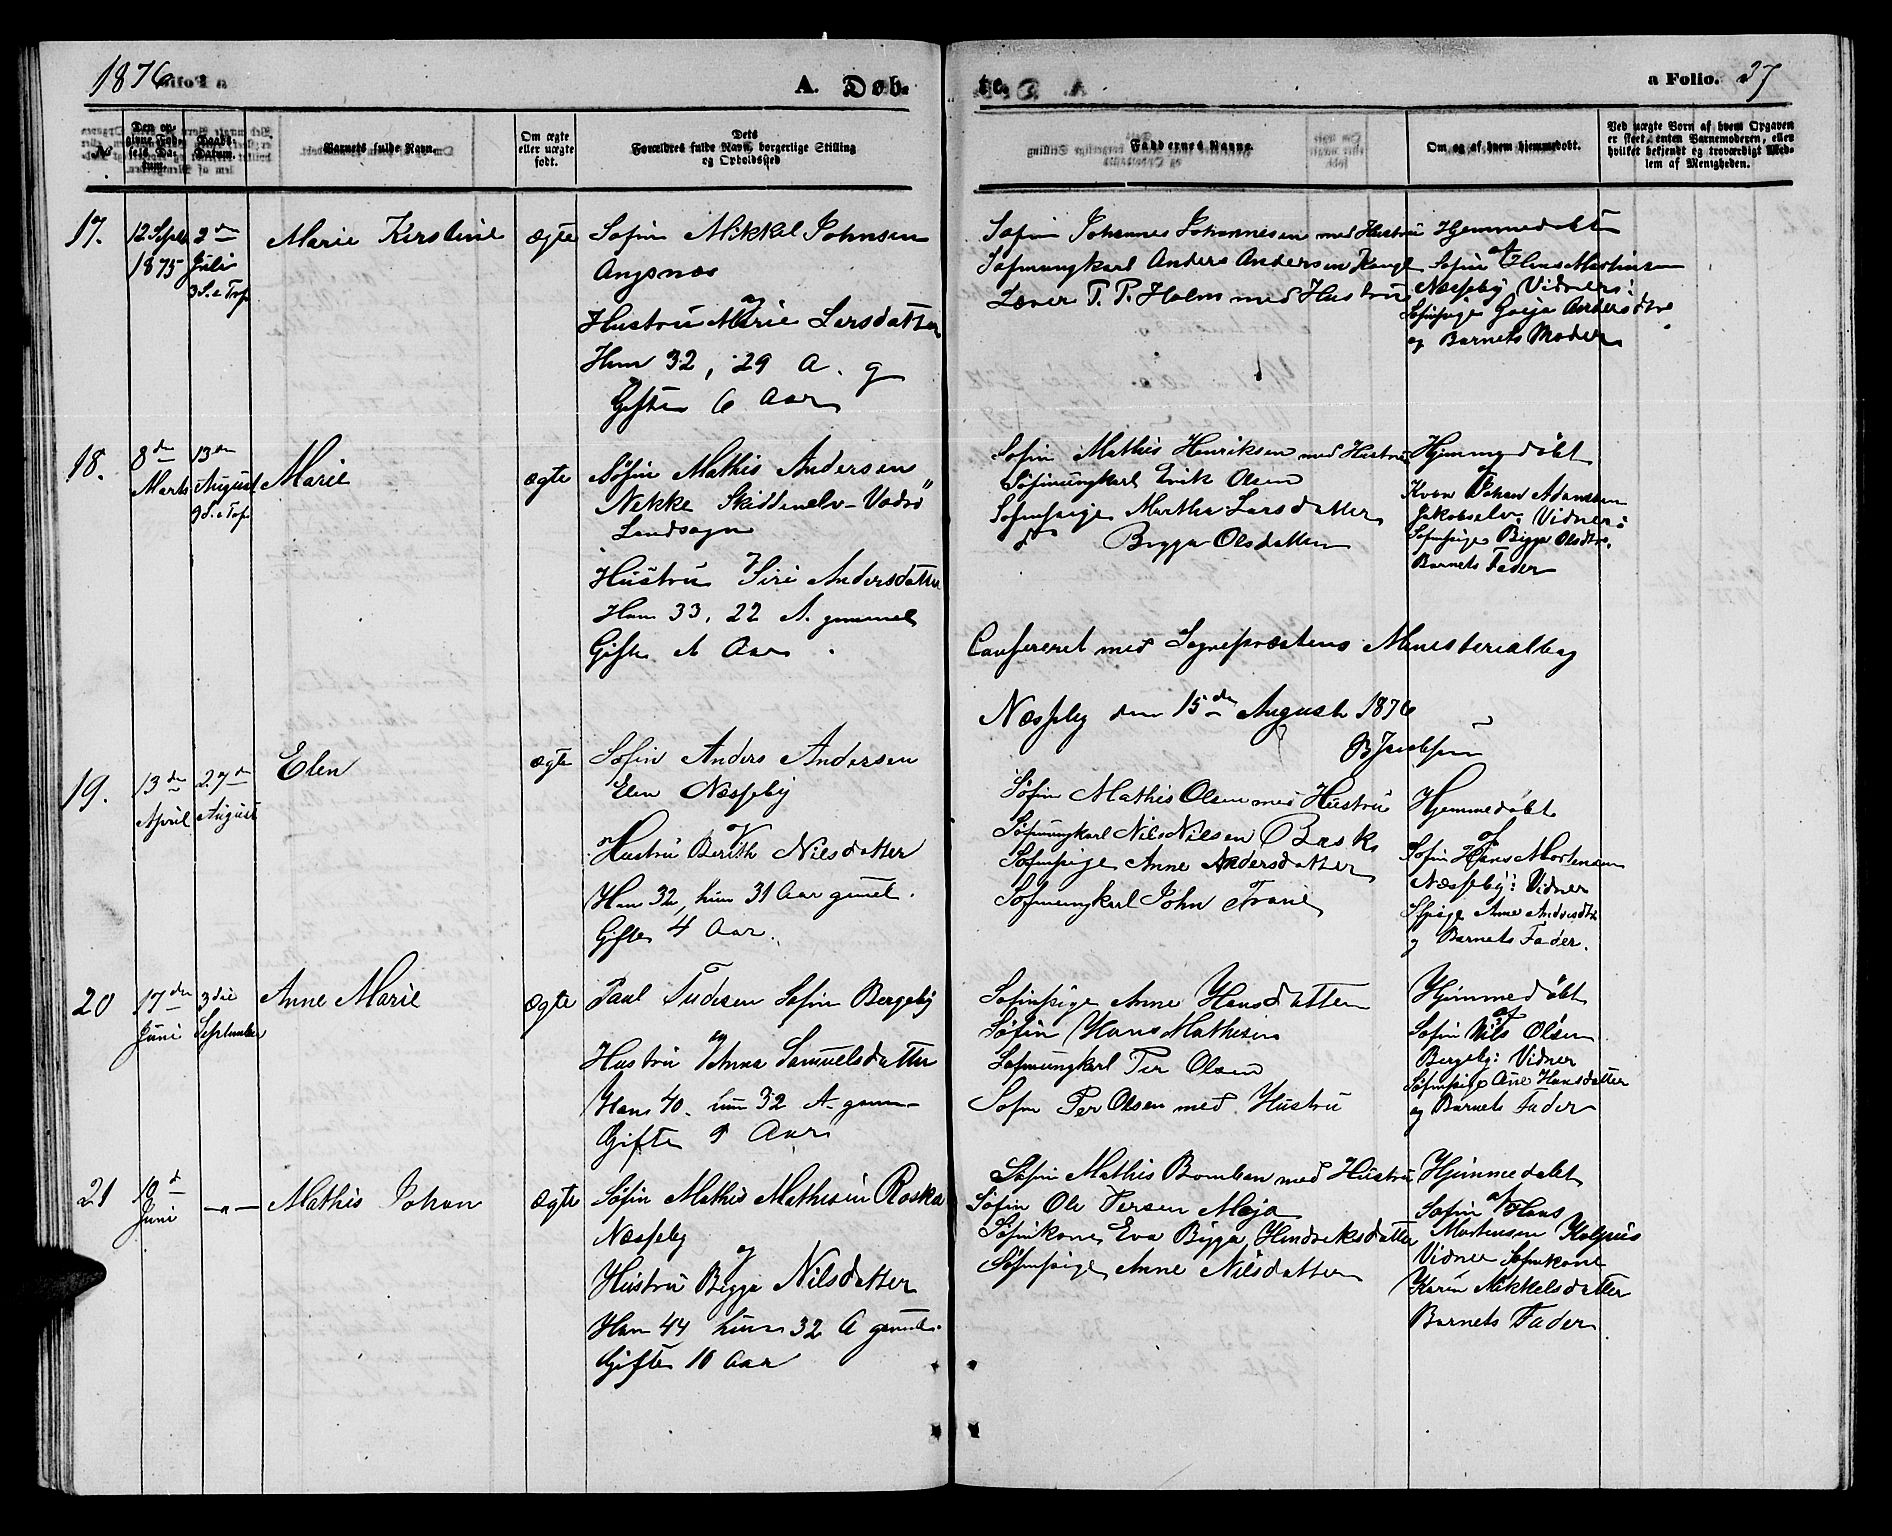 1876
A. Døb-
te.
a Folio. 37
No
Den op-
givne Fød-
sels Da-
tum.
Daabs
Datum.
Barnets fulde Navn.
Om ægte
eller uægte
født.
Dets
Forældres fulde Navn, borgerlige Stilling
og Opholdssted
Faddernes Navne.
Om og af hvem hjemmedøbt.
Ved uægte Børn af hvem Opgaven
er skeet, enten Barnemoderen, eller
hvilket bekjendt og troværdigt Med-
lem af Menigheden.
17.
12 Septr
1875
2den
Juli
3 S. e Tref
Marie Kirstine
ægte
Søfin Mikkel Johnsen
Angsnæs
og
Hustru Marie Larsdatter
Han 32, 29 A. g
Gifte 6 Aar
Søfin Johannes Johannesen med Hustru
Søfinungkarl Anders Andersen
Lærer P. P. Holm med Hustru
Hjemmedøbt
af
Søfin Hans Mortensen
Næsseby Vidner:
Søfinpige Andersdtr
og Barnets Moder
18.
8de
Marts
13de
August
9 S. e Tref
Marie
ægte
Søfin Mathis Andersen
Nikke Skittenelv - Vadsö
Landsogn
Hustru Siri Andersdatter
Han 33, 22 A. gammel
Gifte 1 Aar.
Søfin Mathis Henriksen med Hustru
Søfinungkarl Erik Olsen
Søfinpige Martha Larsdatter
do Bigga Olsdatter
Hjemmedøbt
af
Kvæn Johan Adamsen
Jakobselv. Vidner:
Søfinpige Bigga Olsdtr.
Barnets Fader
Confereret med Sognepræstens Ministerialbog
Næsseby den 15de August 1876
B Jacobsen
19.
13de
April
27de
August
Elen
ægte
Søfin Anders Andersen
Elen Næsseby
og
Hustru Berith Nilsdatter
Han 32, hun 31 Aar gamel.
Gifte 4 Aar.
Søfin Mathis Olsen med Hustru
Søfinungkarl Nils Nilsen Bask
Søfinpige Anne Andersdatter
Søfinungkarl John Trane
Hjemmedøbt
af
Søfin Hans Mortensen
Næsseby: Vidner
Sfpige Anne Andersdtr
og Barnets Fader.
20
17de
Juni
3die
September
Anne Marie
ægte
Paul Tudesen Søfin Bergeby
og
Hustru Anna Samuelsdatter
Han 40. hun 32 A. gam-
Gifte 9 Aar
Søfinpige Anne Hansdatter
Søfin Hans Mathisen
Søfinungkarl Per Olsen
Søfin Per Olsen med Hustru
Hjemmedøbt
af
Søfin Nils Olsen
Bergeby: Vidner
Søfinpige Ane Hansdatter
og Barnets Fader
21
10d
Juni
- " -
Mathis Johan
ægte
Søfin Mathis Mathisen Roska
Næsseby
og
Hustru Bigga Nilsdatter
Han 44 hun 32 A gamle.
Gifte 10 Aar
Søfin Mathis Bomban med Hustru
Søfin Ole Persen Maja
Søfinkone Eva Bigga Hendriksdatter
Søfinpige Anne Nilsdatter
Hjemmedøbt
af
Søfin Hans
Mortensen Kalpus
Vidner Søfinkone
Karen Mikkelsdatter
Barnets Fader.